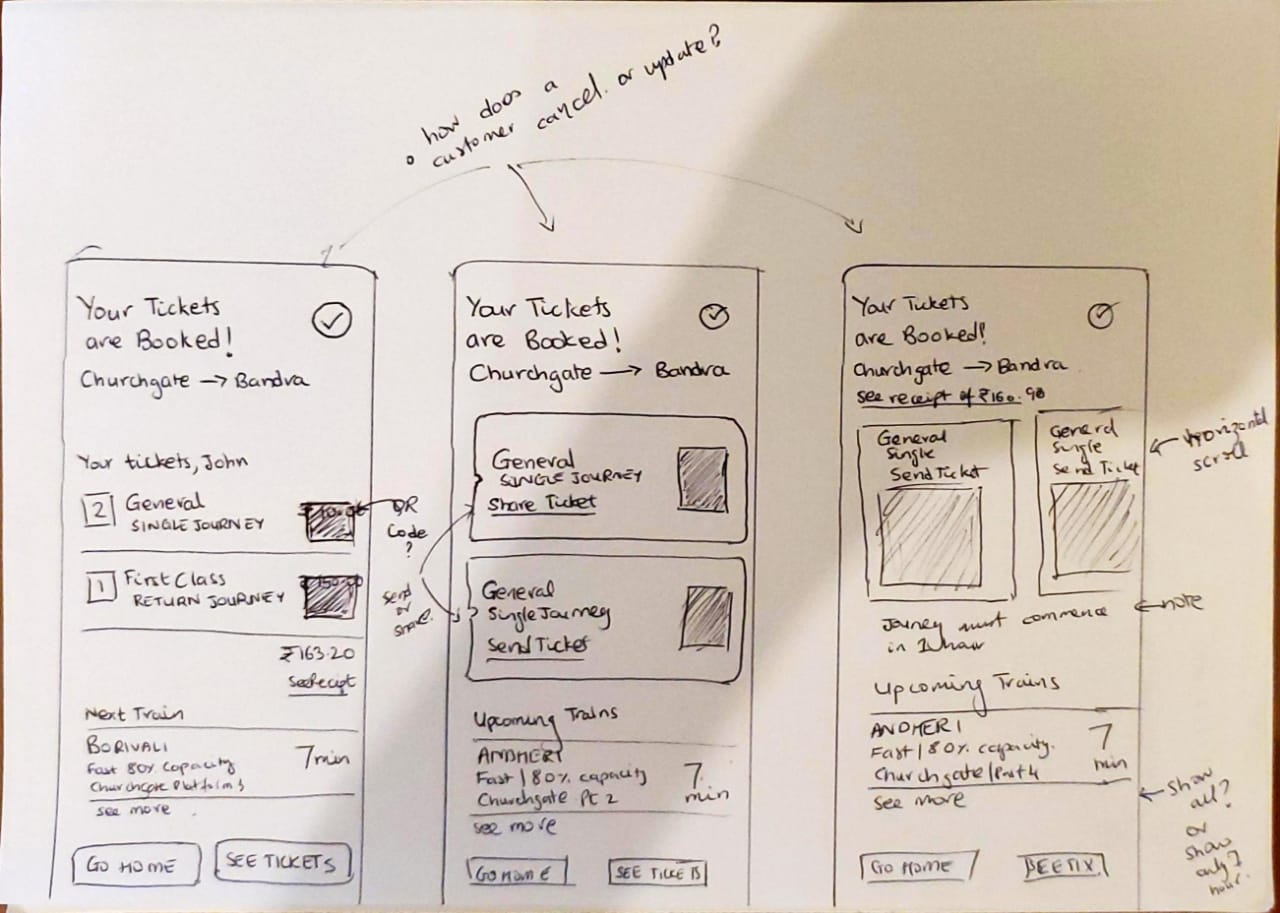 • how does a
customer cancel. or update?
Your Tickets
are Booked!
Churchgate → Bandra
Your tickets, John
2 General
SINGLE JOURNEY
1 First Class
RETURN JOURNEY
₹163.20
See Receipt
Next Train
BORIVALI
7 min
Fast 80% Capacity
Churchgate Platform 3
see more
GO HOME
SEE TICKETS
QR
Code
?
Send
or
share.
Your Tickets
are Booked!
Churchgate → Bandra
General
SINGLE JOURNEY
Share Ticket
General
Single Journey
Send Ticket
Upcoming Trains
ANDHERI
Fast / 80% capacity
7
min
Churchgate Pt 2
see more
GO HOME
SEE TICKETS
Your Tickets
are Booked!
Churchgate → Bandra
see receipt of ₹160.90
General
Single
Send Ticket
General
Single
Send Ticket
Horizontal
scroll
Journey must commence
in 1 hour
note
Upcoming Trains
ANDHERI
Fast / 80% capacity.
7
min
Churchgate /
see more
GO HOME
show
all?
or
show
only 1
hour.